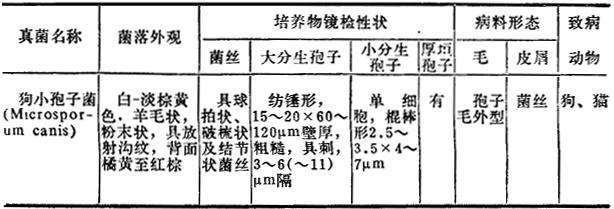 真菌名称 菌落外观 培养物镜检性状 病料形态 致病动物
菌丝 大分生孢子 小分生孢子 厚垣孢子 毛 皮屑
狗小孢子菌 (Microsporum canis)
白-淡棕黄色．羊毛状，粉末状，具放射沟纹，背面橘黄至红棕
具球拍状、破梳状及结节状菌丝
纺锤形，15～20×60～120μm壁厚，粗糙，具刺，3～6(～11)μm隔
单细胞，棍棒形2.5～3.5×4～7μm
有
孢子毛外型
菌丝
狗、猫